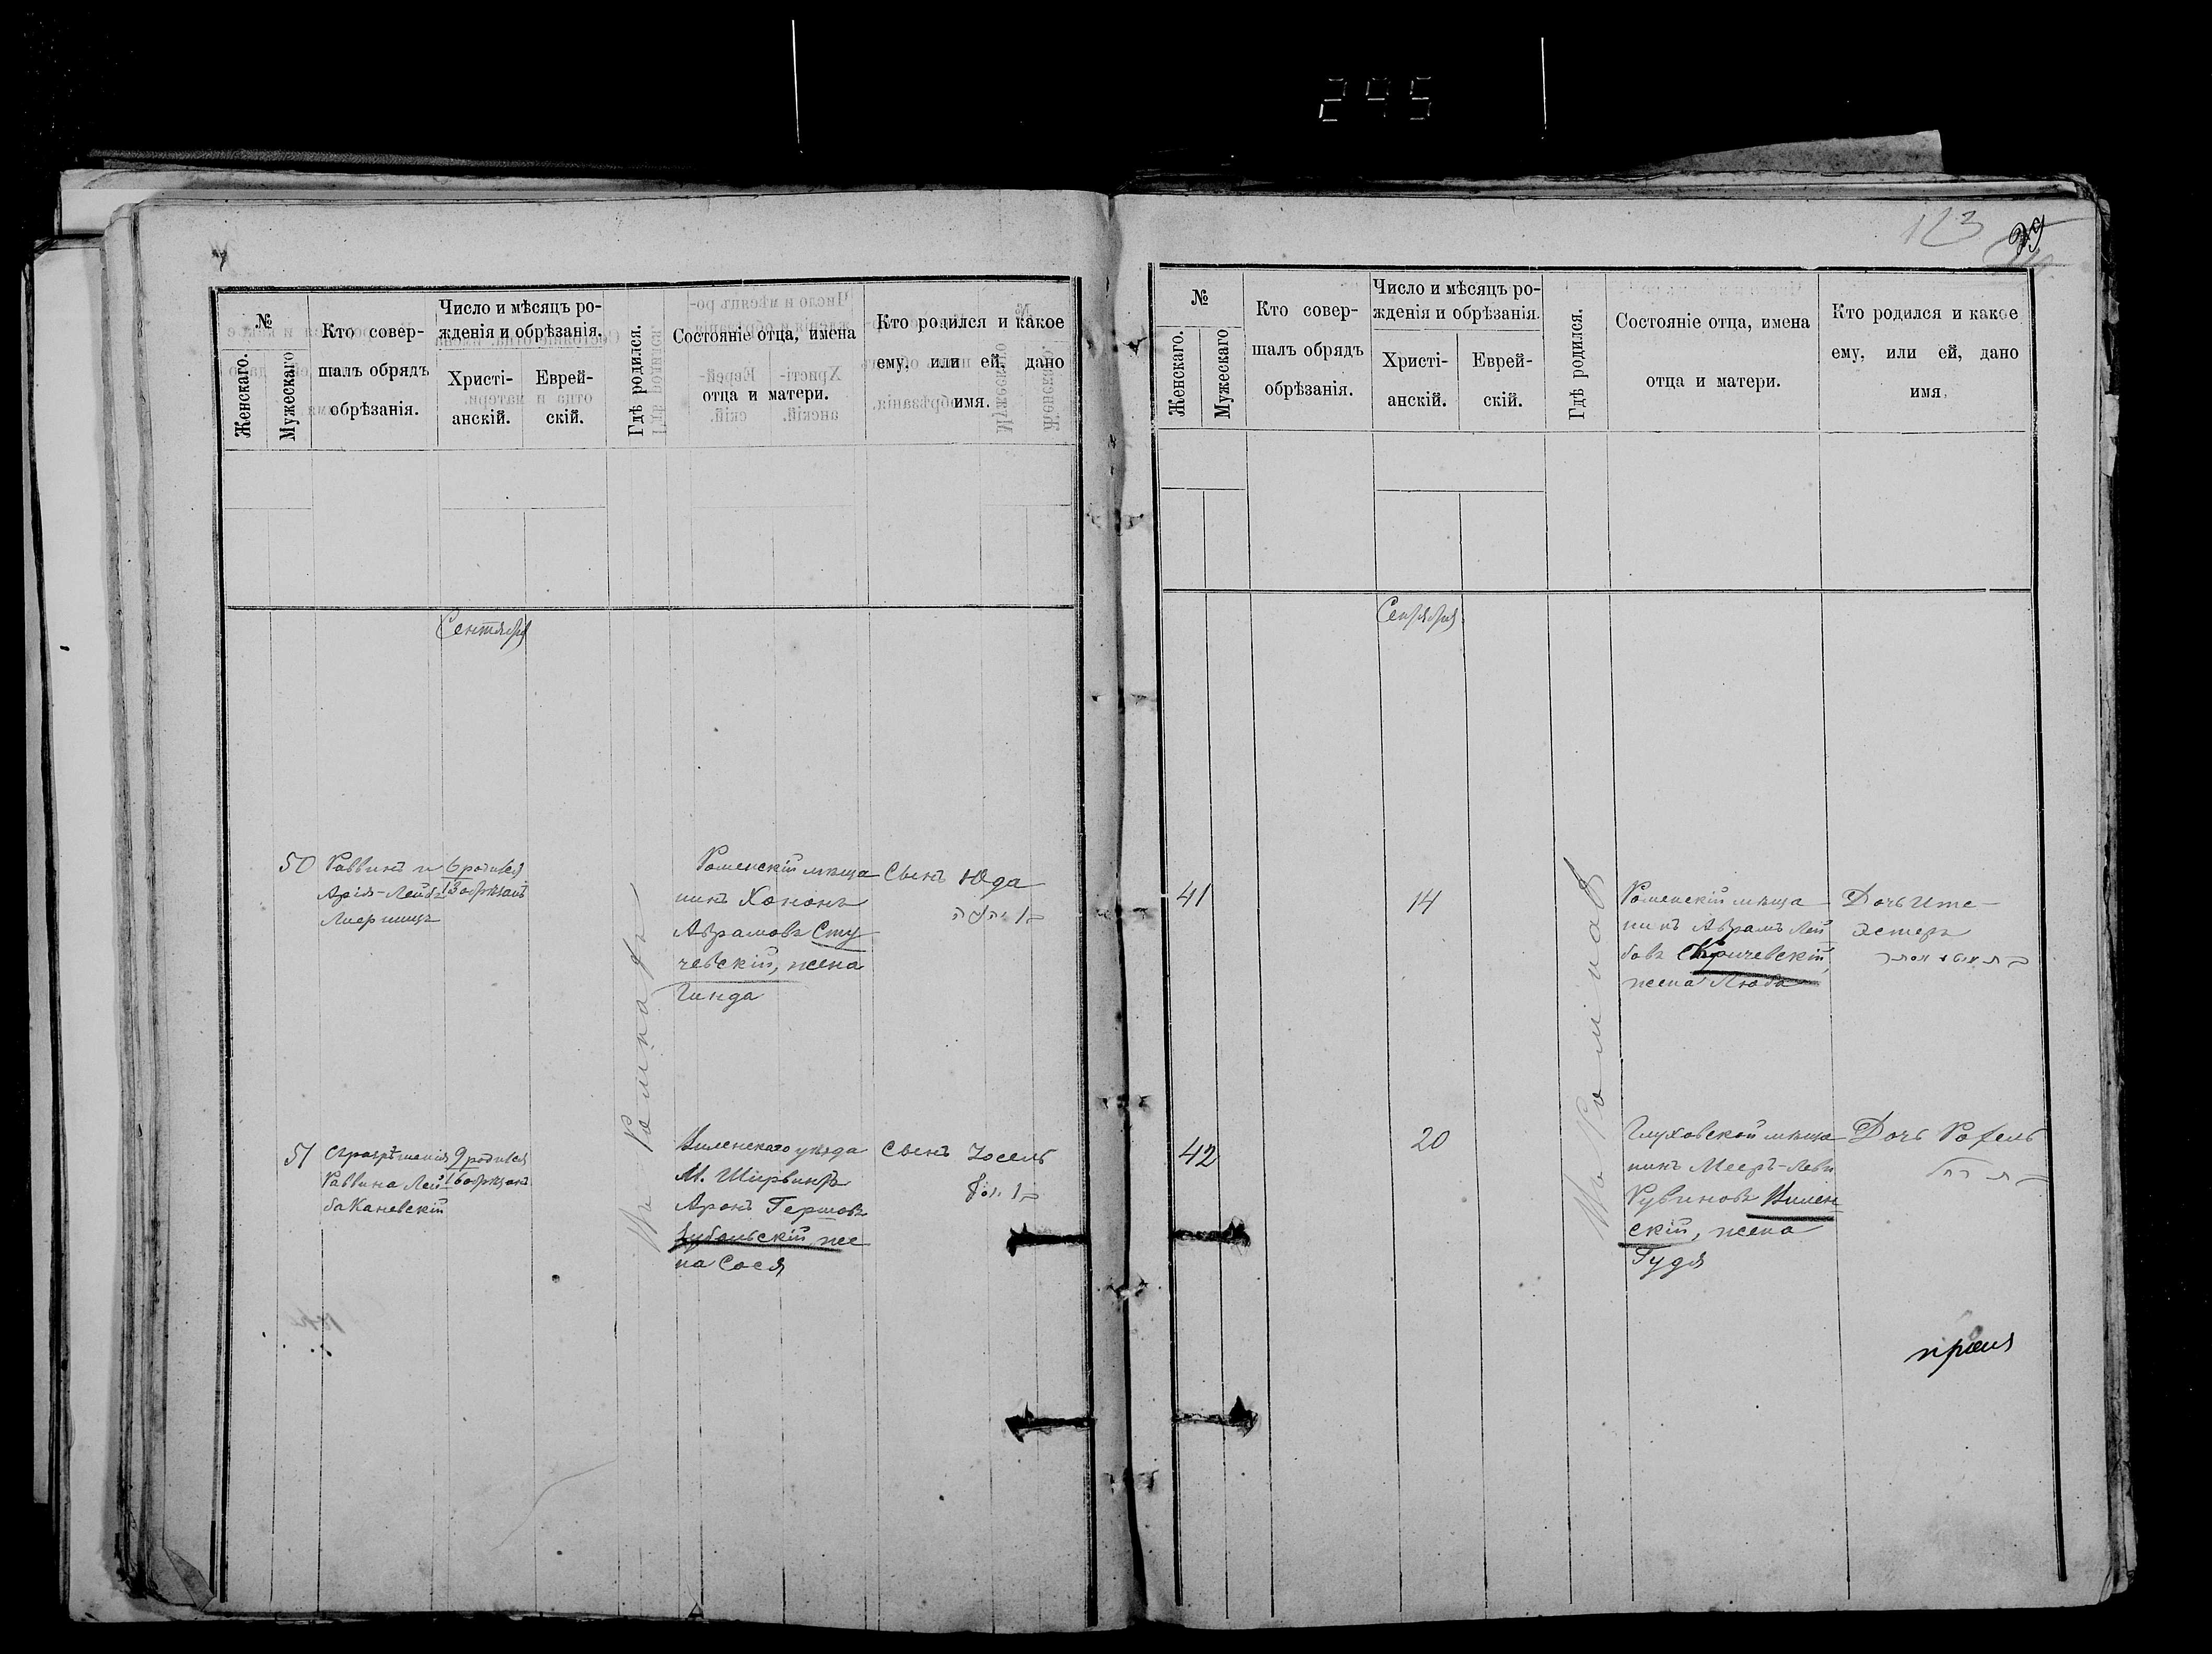 295
№
Женскаго.
Мужескаго
Кто совер-
шалъ обрядъ
обрѣзанія.
Число и мѣсяцъ ро-
жденія и обрѣзанія.
Христі-
анскій.
Еврей-
скій.
Гдѣ родился.
Состояніе отца, имена
отца и матери.
Кто родился и какое
ему, или ей, дано
имя.
Сентября
50
Раввинъ и
Арія-Лейба
6 родился
13 обрѣзанъ
Въ Ромнахъ
Роменскій мѣща
нинъ Хононъ
Абрамовъ Сту
чевскій, жена
Гинда
Сынъ Юда
בן יהודה
51
Съ разрѣшенія
Раввина Лей
ба Каневскій
9 родился
16 обрѣзанъ
Виленскаго уѣзда
М. Ширвинтъ
Аронъ Гершовъ
жe
на Сося
Сынъ Іосель
123
№
Женскаго.
Мужескаго
Кто совер-
шалъ обрядъ
обрѣзанія.
Число и мѣсяцъ ро-
жденія и обрѣзанія.
Христі-
анскій.
Еврей-
скій.
Гдѣ родился.
Состояніе отца, имена
отца и матери.
Кто родился и какое
ему, или ей, дано
имя.
Сентября
41
14
Въ Ромнахъ
Роменскій мѣща
нинъ Абрамъ Лей
бовъ Кричевскій,
жена Люба
Дочь Ите-
Эстеръ
42
20
Глуховской мѣща
нинъ Мееръ-Леви
Рувиновъ Вилен
скій, жена
Гудя
Дочь Рохель
בת רחל